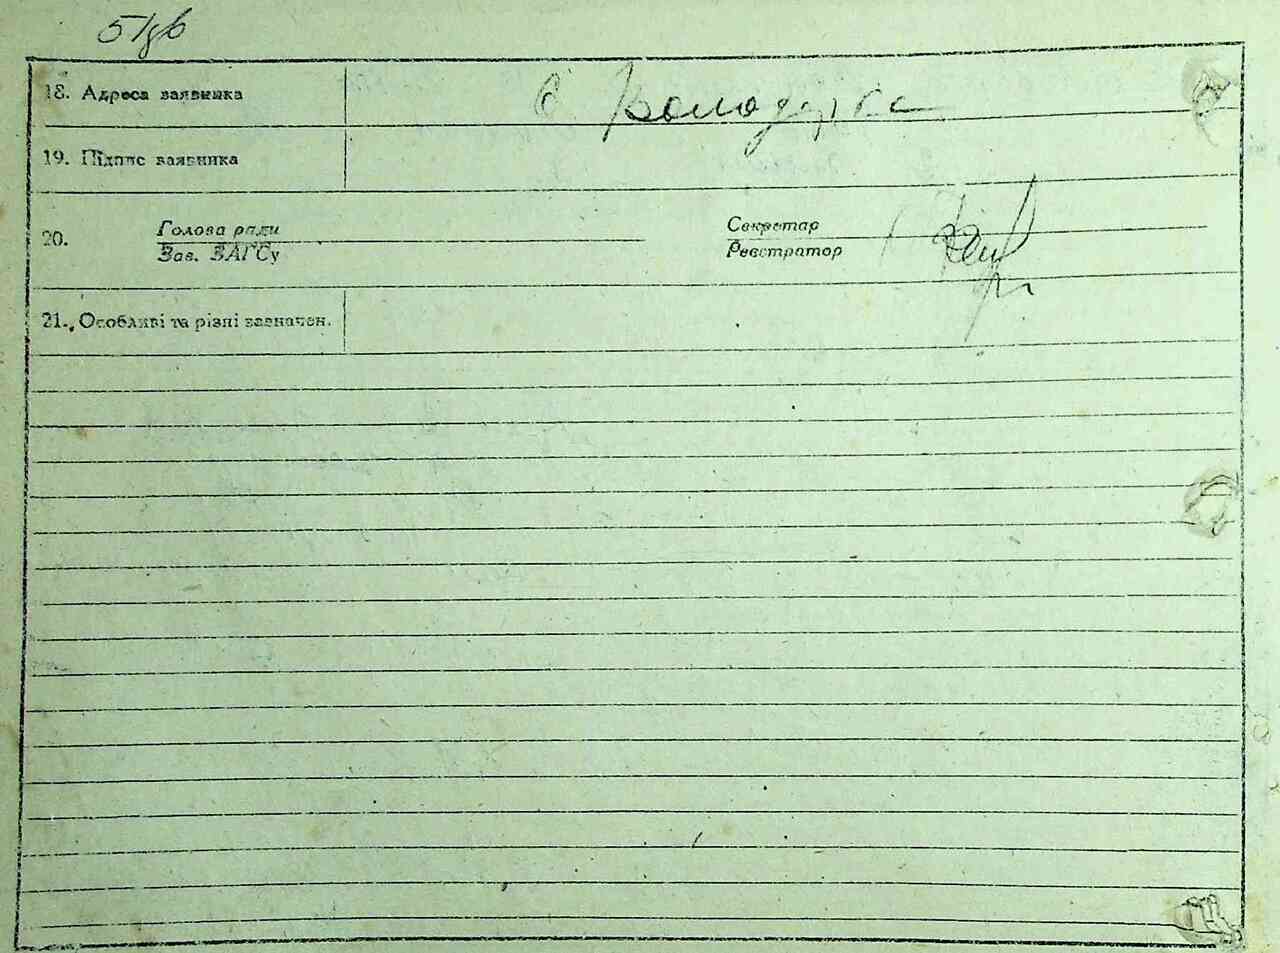 51зв
18. Адреса заявника с. Володарка
19. Підпис заявника
20. Голова ради Секретар
Зав. ЗАГСу Реєстратор
21. Особливі та різні зазначен.